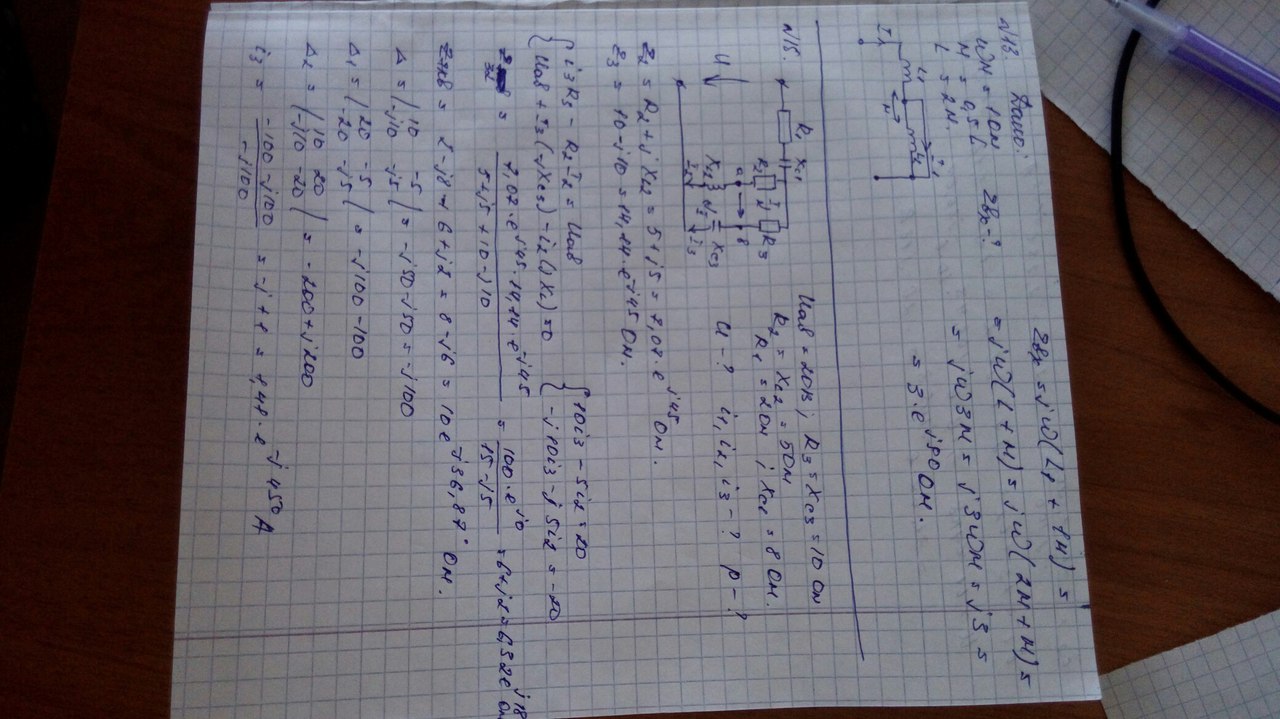 N13. Дано:
ωM = 1 Ом
M = 0,5L
L = 2M.
Zвх -?
Zвх = jω(L1 + 1M) =
= jω(L + M) = jω(2M + M) =
= jω3M = j3ωM = j3 =
= 3·e^j90 Ом.
I1 L1 M L2
N15.
Uав = 20В; R3 = Xc3 = 10 Ом
R2 = XL2 = 5 Ом
R1 = 2 Ом; Xc1 = 8 Ом.
U -? i1, i2, i3 -? P -?
R1 Xc1
R2 R3
a в
XL2 Xc3
U
I2 I3
Z2 = R2 + jXL2 = 5 + j5 = 7,07·e^j45 Ом.
Z3 = 10 - j10 = 14,14·e^-j45 Ом.
{ i3R3 - R2I2 = Uав
Uав + I3(-jXc3) - i2(jXL) = 0
{ 10i3 - 5i2 = 20
-j10i3 - j5i2 = -20
= 7,07·e^j45·14,14·e^-j45 / 5+j5+10-j10 = 100·e^j0 / 15-j5 = 6+j2 = 6,32e^j18 Ом
Zэкв = 2 - j8 + 6 + j2 = 8 - j6 = 10e^-j36,87° Ом.
Δ = |10 -5 / -j10 -j5| = -j50 - j50 = -j100
Δ1 = |20 -5 / -20 -j5| = -j100 - 100
Δ2 = |10 20 / -j10 -20| = -200 + j200
i3 = -100 - j100 / -j100 = -j + 1 = 1,41·e^-j45° А